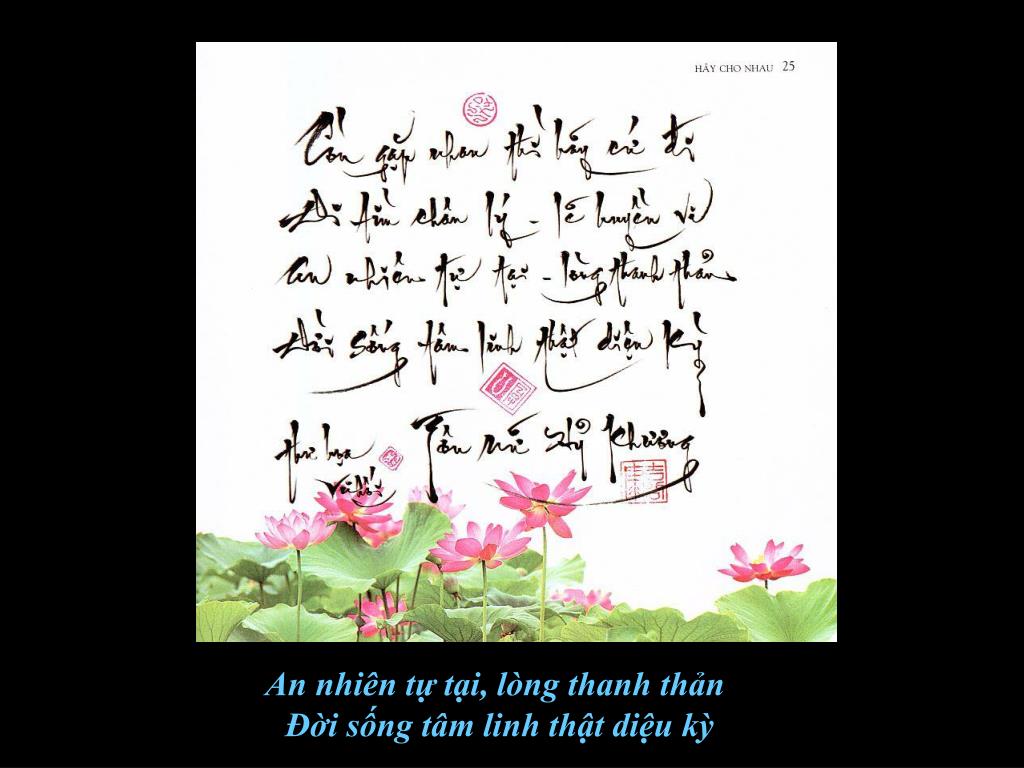 HÃY CHO NHAU 25
Còn gặp nhau thì hãy cứ đi
Đi tìm chân lý - lẽ huyền vi
An nhiên tự tại - lòng thanh thản
Đời sống tâm linh thật diệu kỳ
Tôn Nữ Hỷ Khương
Thư họa
Vũ Hối
An nhiên tự tại, lòng thanh thản
Đời sống tâm linh thật diệu kỳ